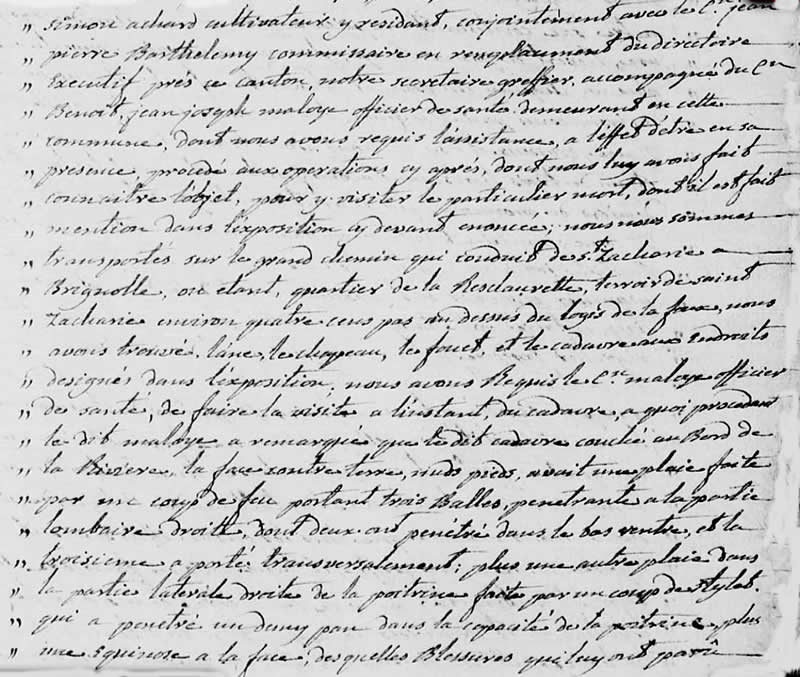 " simon achard cultivateur y residant, conjointement avec le C.en jean
" pierre Barthelemy commissaire en remplacement du directoire
" Executif prés ce canton, notre secretaire greffier, accompagné du C.en
" Benoit, jean joseph maloye officier de santé demeurant en cette
" commune, dont nous avons requis l'assistance, a l'effet d'etre en sa
" presence, procédé aux operations cy aprés, dont nous luy avois fait
" connaitre l'objet, pour y visiter le particulier mort, dont il est fait
" mention dans l'exposition cy devant enoncée; nous nous sommes
" transportés sur le grand chemin qui conduit de St. Zacharie a
" Brignolle, ou etant, quartier de la Resclaurette, terroir de saint
" Zacharie environ quatre cens pas au dessus du logis de la foux, nous
" avons trouvé, l'ane, le chapeau, le fouet, et le cadavre aux Endroits
" designés dans l'exposition, nous avons Requis le C.en maloye officier
" de santé, de faire la visite a l'instant, du cadavre, a quoi procedant
" le dit maloye a remarqué que le dit cadavre couché au Bord de
" la Riviere, la face contre terre, nuds pieds, avait une plaie faite
" par un coup de feu portant trois Balles, penetrante a la partie
" lombaire droite, dont deux ont penétré dans le bas ventre, et la
" troisieme a porté transversalement; plus une autre plaie dans
" la partie laterale droite de la poitrine faite par un coup de stylet.
" qui a penetré un demy pan dans la capacité de la poitrine, plus
" une Equinose a la face; desquelles Blessures qui luy ont parû